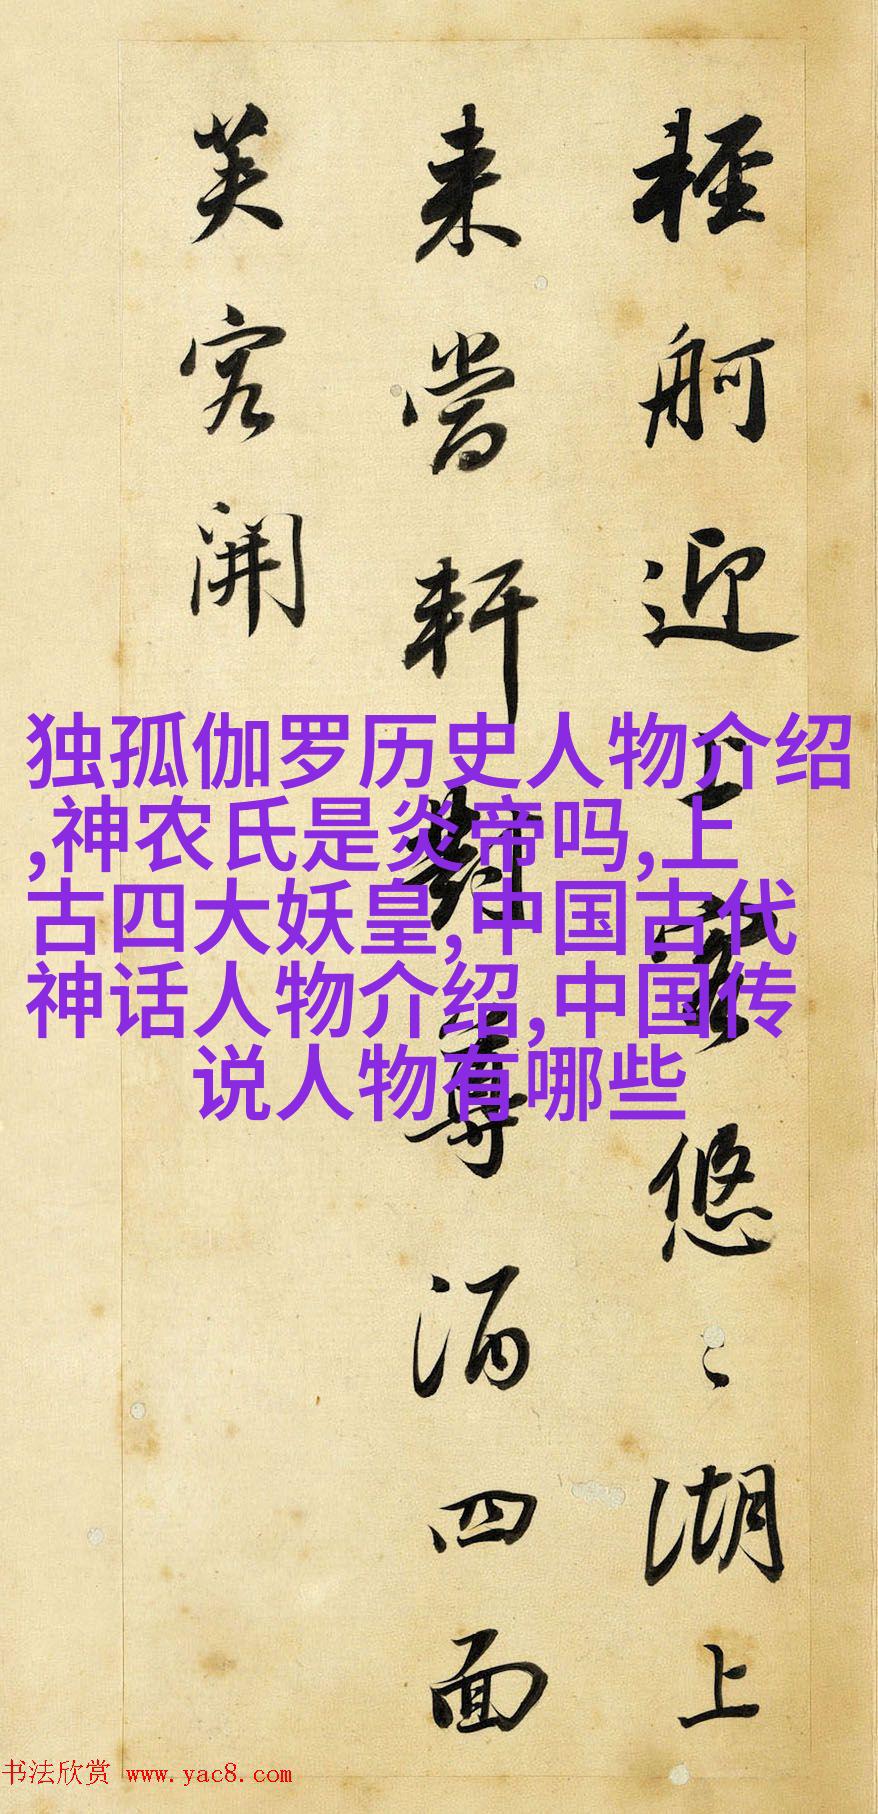 輕舸迎上客悠〻湖上
来當軒對尊酒四面
芙容開
独孤伽罗历史人物介绍
,神农氏是炎帝吗,上
古四大妖皇,中国古代
神话人物介绍,中国传
说人物有哪些
书法欣赏 www.yac8.com